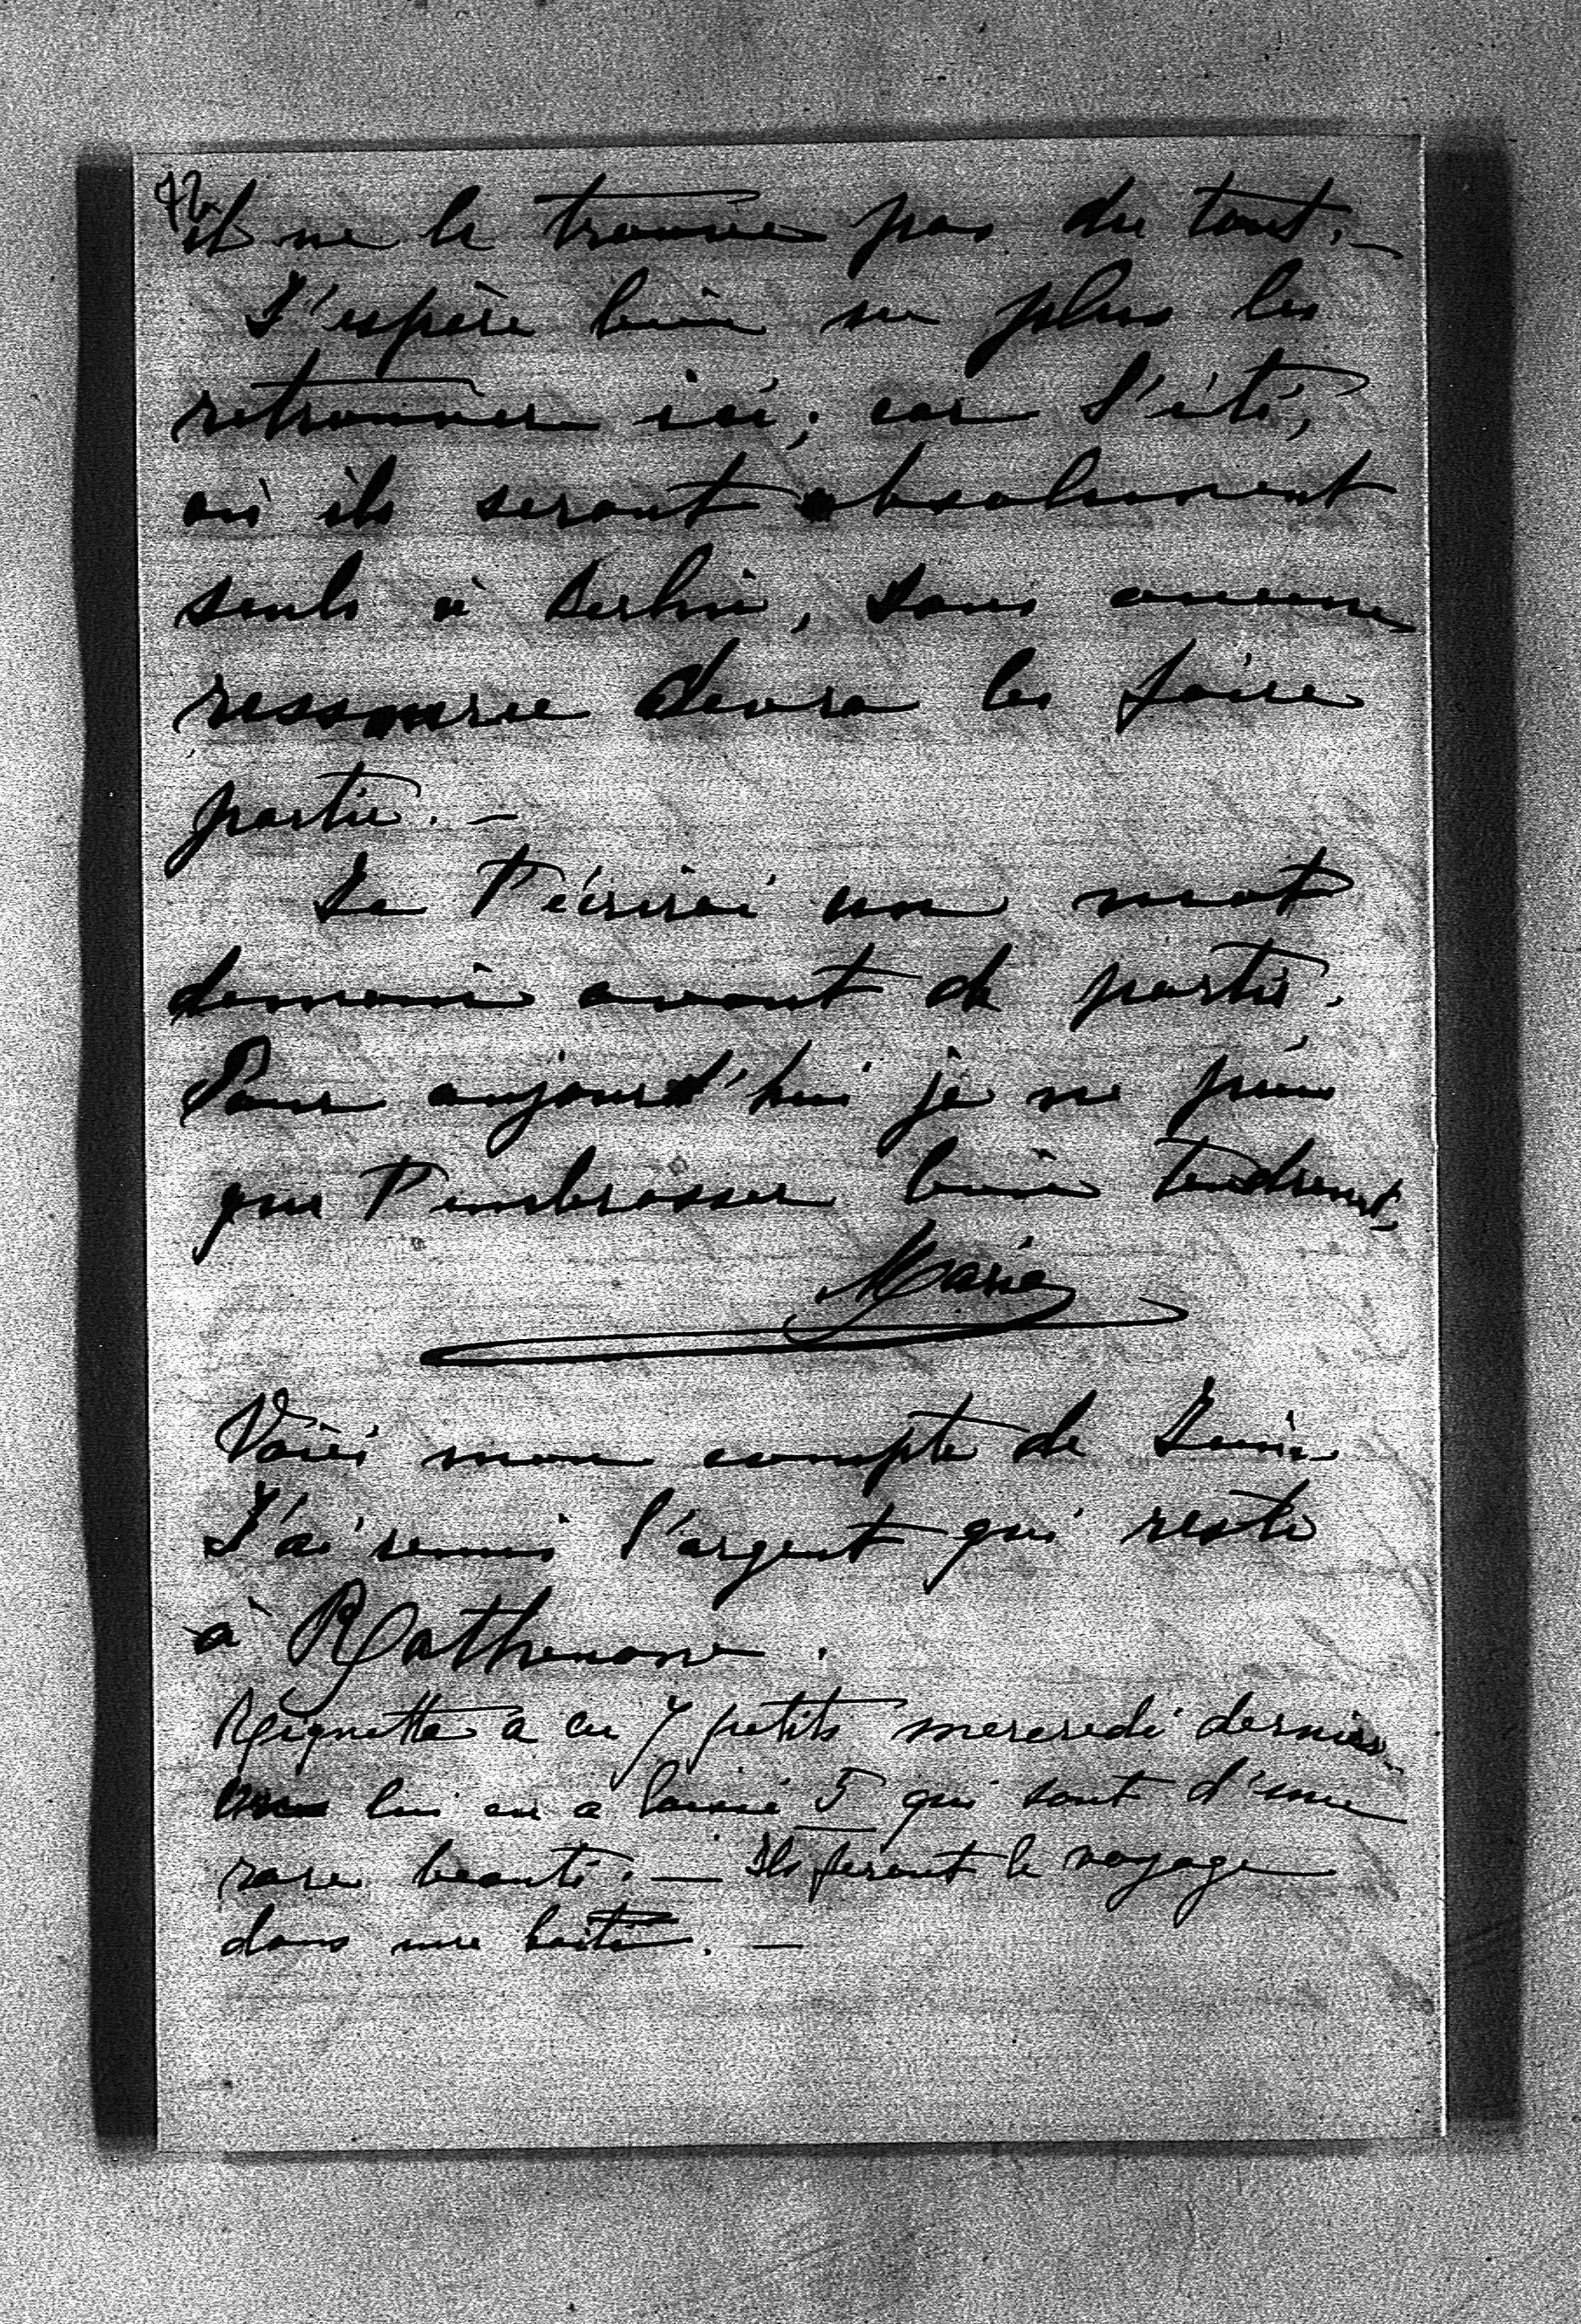 il ne le trouve pas du tout. —
J'espère bien ne plus les
retrouver ici; car l'été,
où ils seront absolument
seuls à Berlin, sans aucune
ressource devra les faire
partir. —
Je t'écrirai un mot
demain avant de partir.
Pour aujourd'hui je ne puis
que t'embrasser bien tendremt,
Marie
Voici mon compte de Juin
J'ai remis l'argent qui reste
à Rathenone.
a eu 7 petits mercredi dernier
lui en a laissé 5 qui sont d'une
rare beauté. — Ils feront le voyage
dans une boîte. —